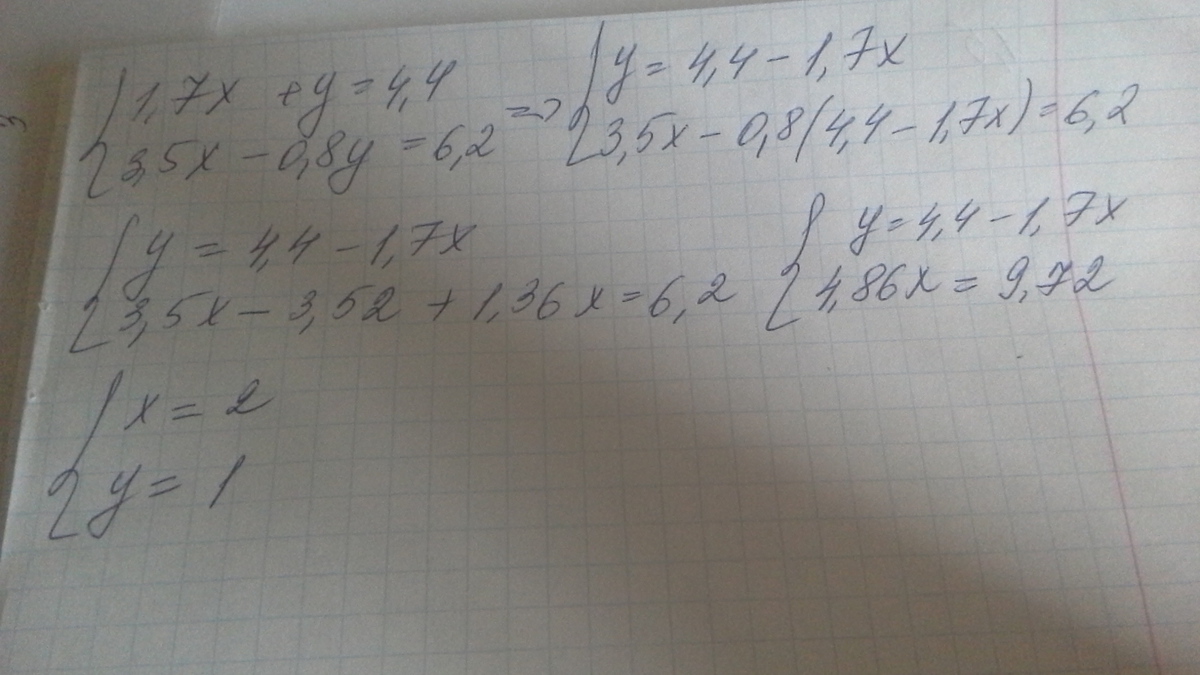 { 1,7x + y = 4,4
3,5x - 0,8y = 6,2 =>
{ y = 4,4 - 1,7x
3,5x - 0,8(4,4 - 1,7x) = 6,2
{ y = 4,4 - 1,7x
3,5x - 3,52 + 1,36x = 6,2
{ y = 4,4 - 1,7x
4,86x = 9,72
{ x = 2
y = 1